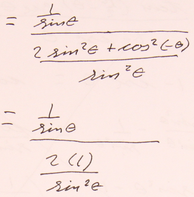 = (1/sinθ) / ((2 sin²θ + cos²(-θ)) / sin²θ)
= (1/sinθ) / (2(1) / sin²θ)